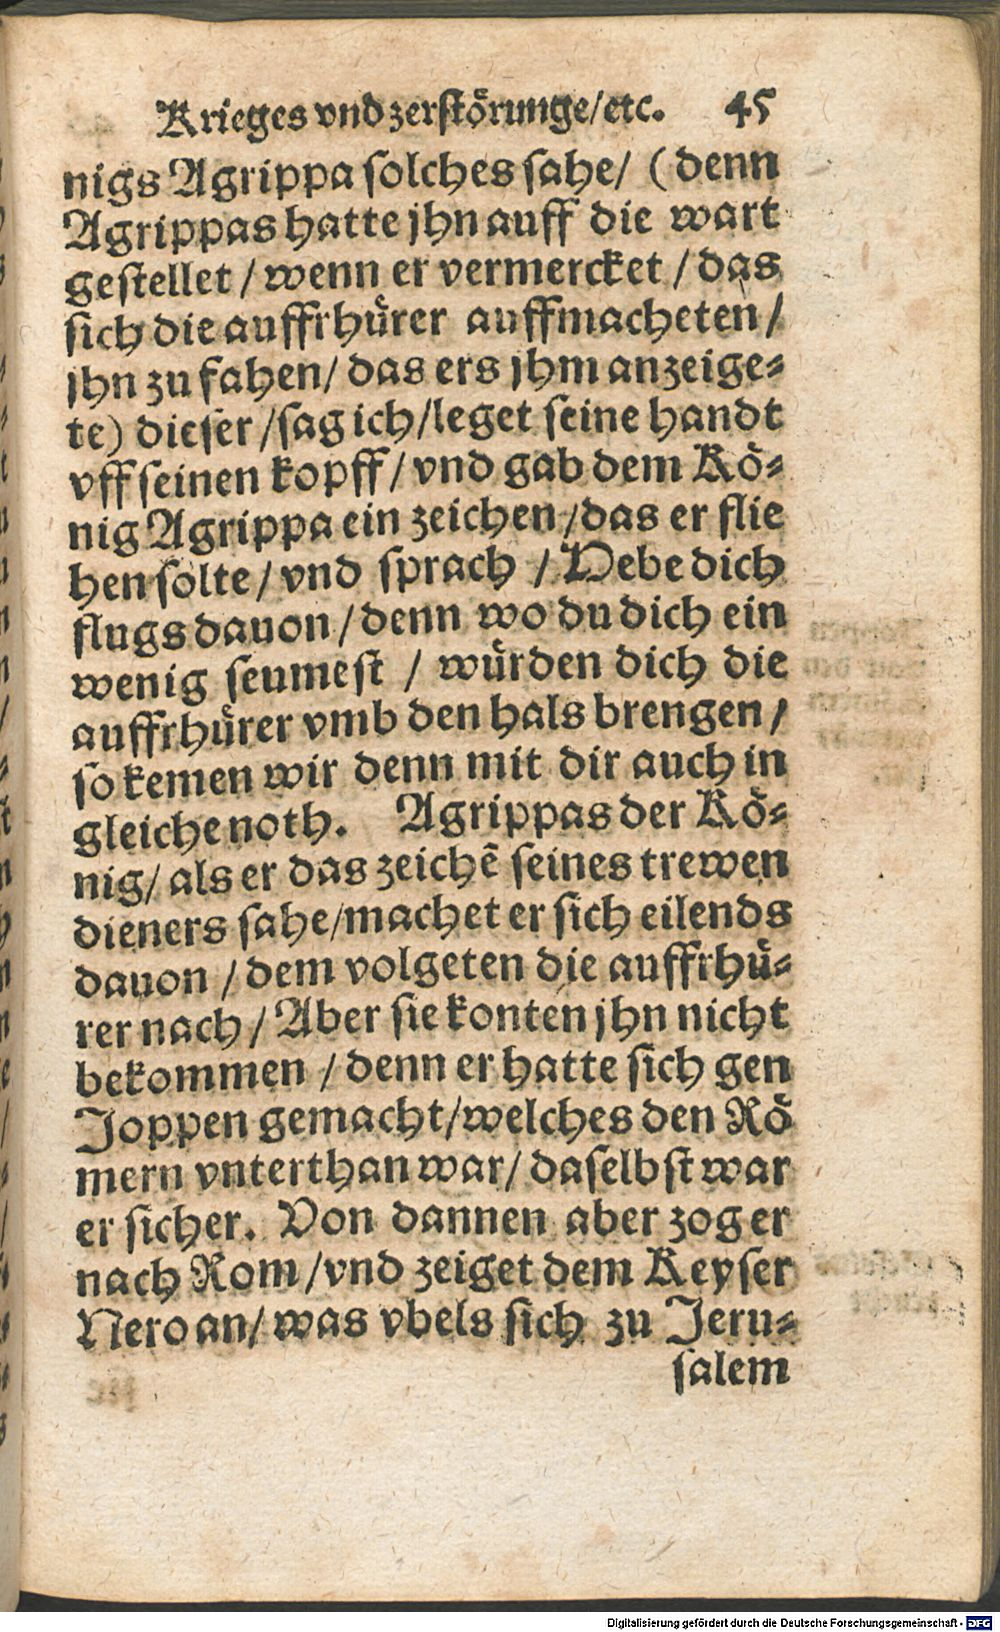 Krieges vnd zerstörunge/etc. 45
nigs Agrippa solches sahe/ (denn
Agrippas hatte jhn auff die wart
gestellet / wenn er vermercket / das
sich die auffrhürer auffmacheten /
jhn zu fahen/ das ers jhm anzeige-
te) dieser /sag ich/leget seine handt
vff seinen kopff / vnd gab dem Kö-
nig Agrippa ein zeichen /das er flie
hen solte / vnd sprach / Hebe dich
flugs dauon / denn wo du dich ein
wenig seumest / würden dich die
auffrhürer vmb den hals brengen /
so kemen wir denn mit dir auch in
gleiche noth. Agrippas der Kö-
nig/ als er das zeichē seines trewen
dieners sahe/machet er sich eilends
dauon / dem volgeten die auffrhü-
rer nach / Aber sie konten jhn nicht
bekommen / denn er hatte sich gen
Joppen gemacht/welches den Rö
mern vnterthan war/ daselbst war
er sicher. Von dannen aber zog er
nach Rom /vnd zeiget dem Keyser
Nero an/ was vbels sich zu Jeru-
salem
Digitalisierung gefördert durch die Deutsche Forschungsgemeinschaft - DFG